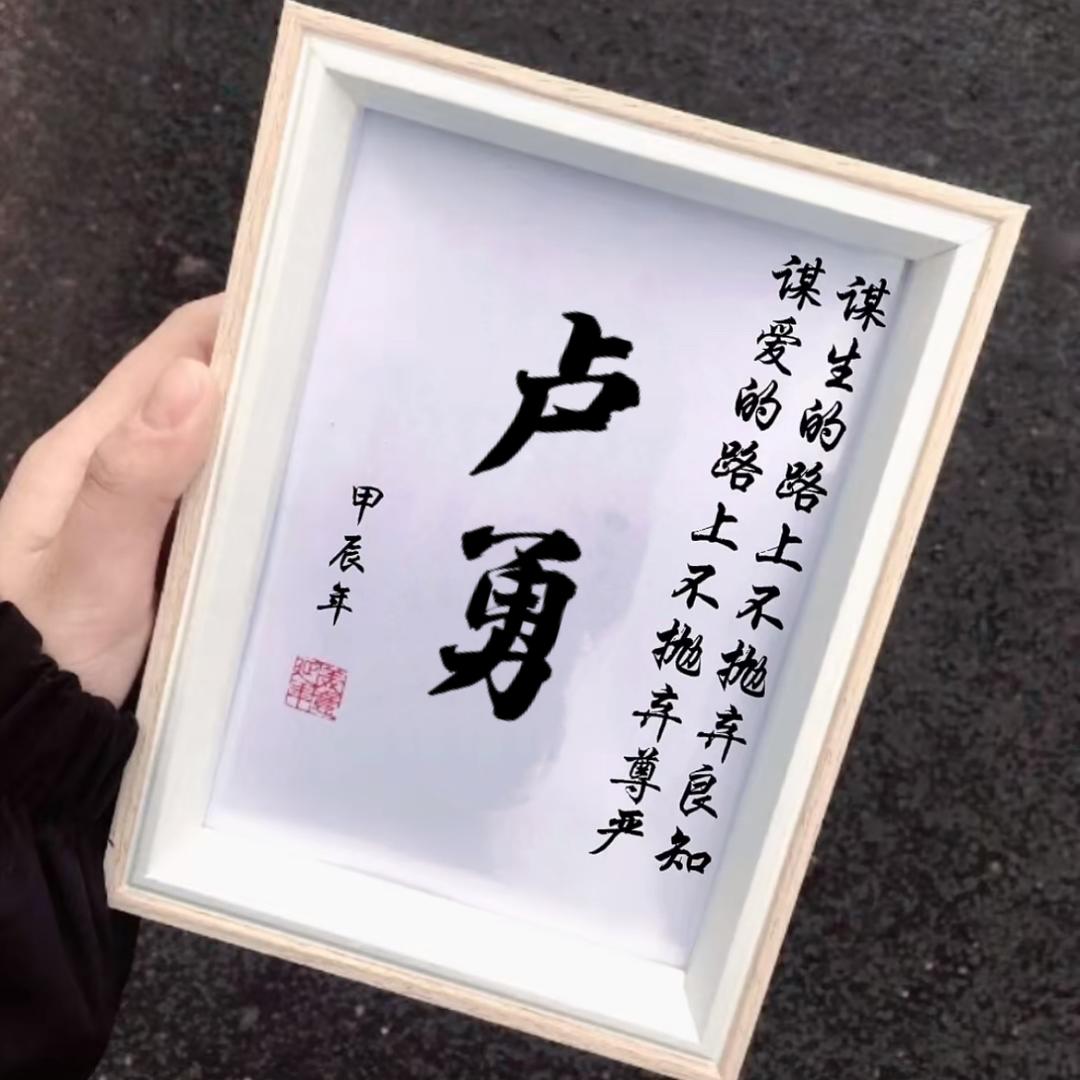 谋生的路上不抛弃良知
谋爱的路上不抛弃尊严
卢勇
甲辰年